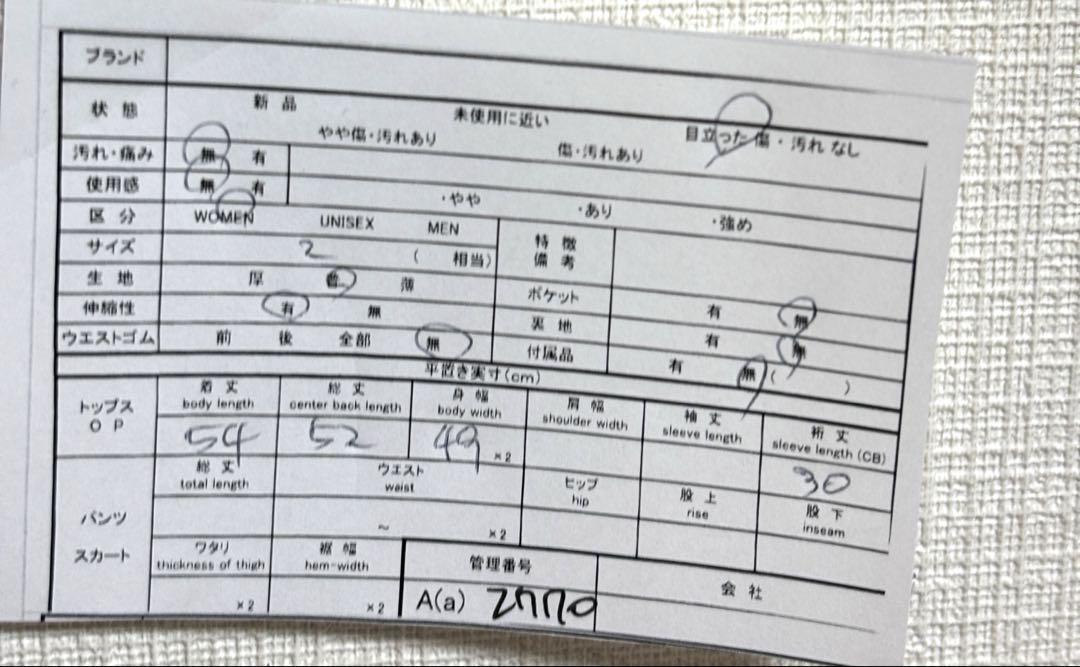 ブランド
状態 新品 未使用に近い 目立った傷・汚れなし
やや傷・汚れあり 傷・汚れあり
汚れ・痛み 無 有
使用感 無 有 ・やや ・あり ・強め
区分 WOMEN UNISEX MEN 特徴備考
サイズ 2 ( 相当)
生地 厚 普 薄 ポケット 有 無
伸縮性 有 無 裏地 有 無
ウエストゴム 前 後 全部 無 付属品 有 無 ( )
平置き実寸(cm)
トップス OP
着丈 総丈 身幅 肩幅 袖丈 裄丈
body length center back length body width shoulder width sleeve length sleeve length (CB)
54 52 49 ×2 30
パンツ スカート
総丈 ウエスト ヒップ 股上 股下
total length waist hip rise inseam
~ ×2
ワタリ 裾幅 管理番号 会社
thickness of thigh hem-width
×2 ×2 A(a) 2770